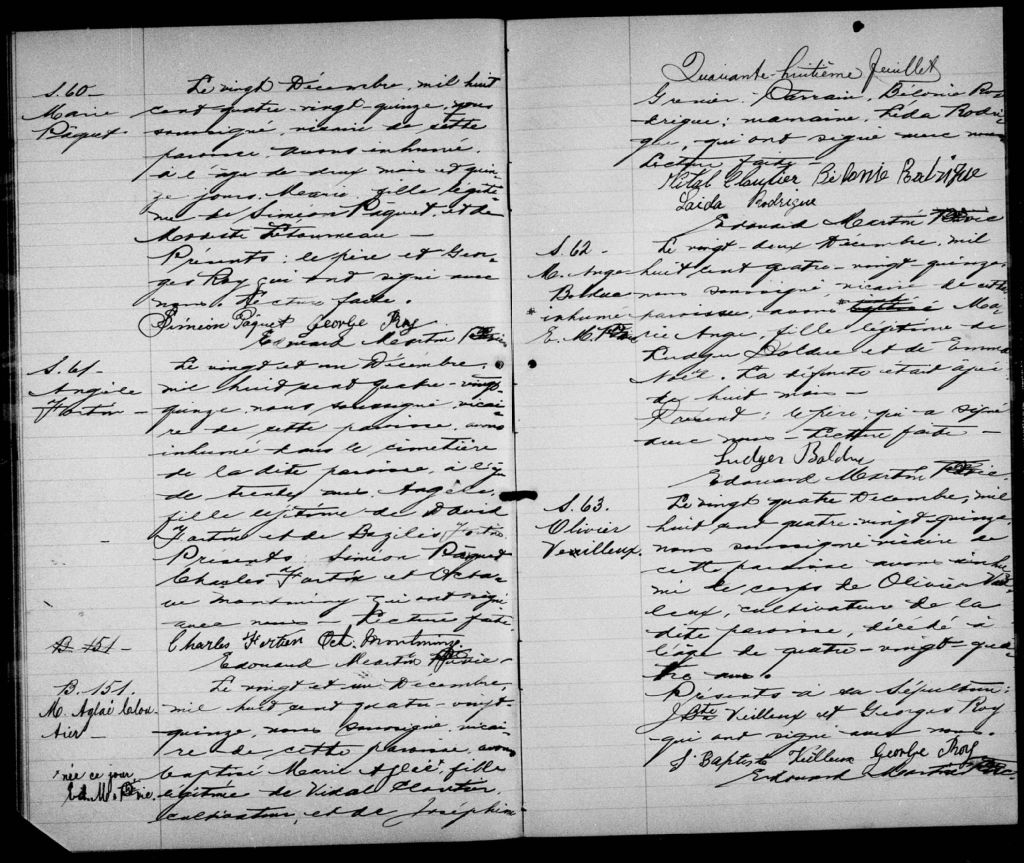 S. 60 -
Marie
Pâquet
Le vingt Décembre, mil huit
cent quatre-vingt-quinze, nous
soussigné, vicaire de cette
paroisse, avons inhumé,
à l'âge de deux mois et quin-
ze jours, Marie, fille légiti-
me de Siméon Pâquet, et de
Modeste Létourneau -
Présents : le père et Geor-
ges Roy qui ont signé avec
nous. Lecture faite.
Siméon Pâquet George Roy
Edouard Martin Ptre vic.
S. 61 -
Angèle
Fortin -
Le vingt et un Décembre,
mil huit cent quatre-vingt-
quinze, nous soussigné, vicai-
re de cette paroisse, avons
inhumé dans le cimetière
de la dite paroisse, à l'âge
de trente ans, Angèle,
fille légitime de David
Fortin et de Bazilis Fortin.
Présents : Siméon Pâquet
Charles Fortin et Octa-
ve Montminy qui ont signé
avec nous - Lecture faite.
Charles Fortier Oct. Montminy
Edouard Martin Ptre vic -
B 151 -
B. 151.
M. Aglaé Clou-
tier -
* née ce jour,
Ed. M. Ptre vic.
Le vingt et un Décembre,
mil huit cent quatre-vingt
quinze, nous soussigné, vicai-
re de cette paroisse, avons
baptisé Marie Aglaé*, fille
légitime de Vidal Cloutier,
cultivateur, et de Joséphine
Quarante-huitième feuillet
Grenier. Parrain, Bélonie Ro-
drigue; marraine, Léda Rodri-
gue, qui ont signé avec nous
Lecture faite
Vital Cloutier Bélonie Rodrigue
Laida Rodrigue
Edouard Martin Ptre vic
S. 62 -
M. Ange
Bolduc
* inhumé
E. M. Ptre vic
Le vingt-deux Décembre, mil
huit cent quatre-vingt-quinze,
nous soussigné vicaire de cette
paroisse, avons * baptisé Ma-
rie Ange, fille légitime de
Ludger Bolduc et de Emma
Noël. La défunte était agée
de huit mois -
Présent : le père, qui a signé
avec nous - Lecture faite -
Ludger Bolduc
Edouard Martin Ptre vic.
S. 63.
Olivier
Veuilleux.
Le vingt quatre Décembre, mil
huit cent quatre-vingt-quinze,
nous soussigné vicaire de
cette paroisse avons inhu-
mé le corps de Olivier Veil-
leux, cultivateur de la
dite paroisse, décédé à
l'âge de quatre-vingt-qua-
tre ans.
Présents à sa sépulture :
J Bte Veilleux et Georges Roy
qui ont signé avec nous.
J. Baptiste Veilleux George Roy
Edouard Martin Ptre vic.